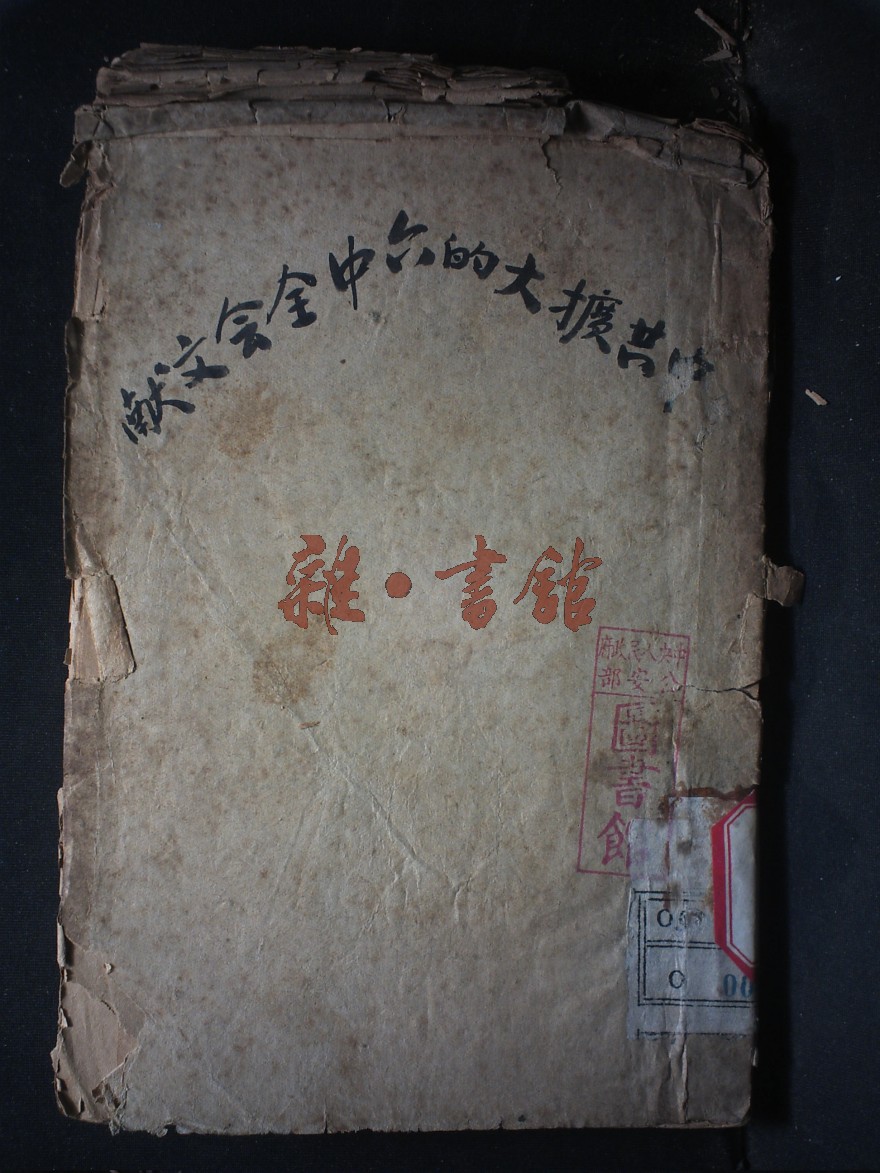 中共擴大的六中全会文献
雜·書館
中央人民政府
公安部
圖書館
O
O 00